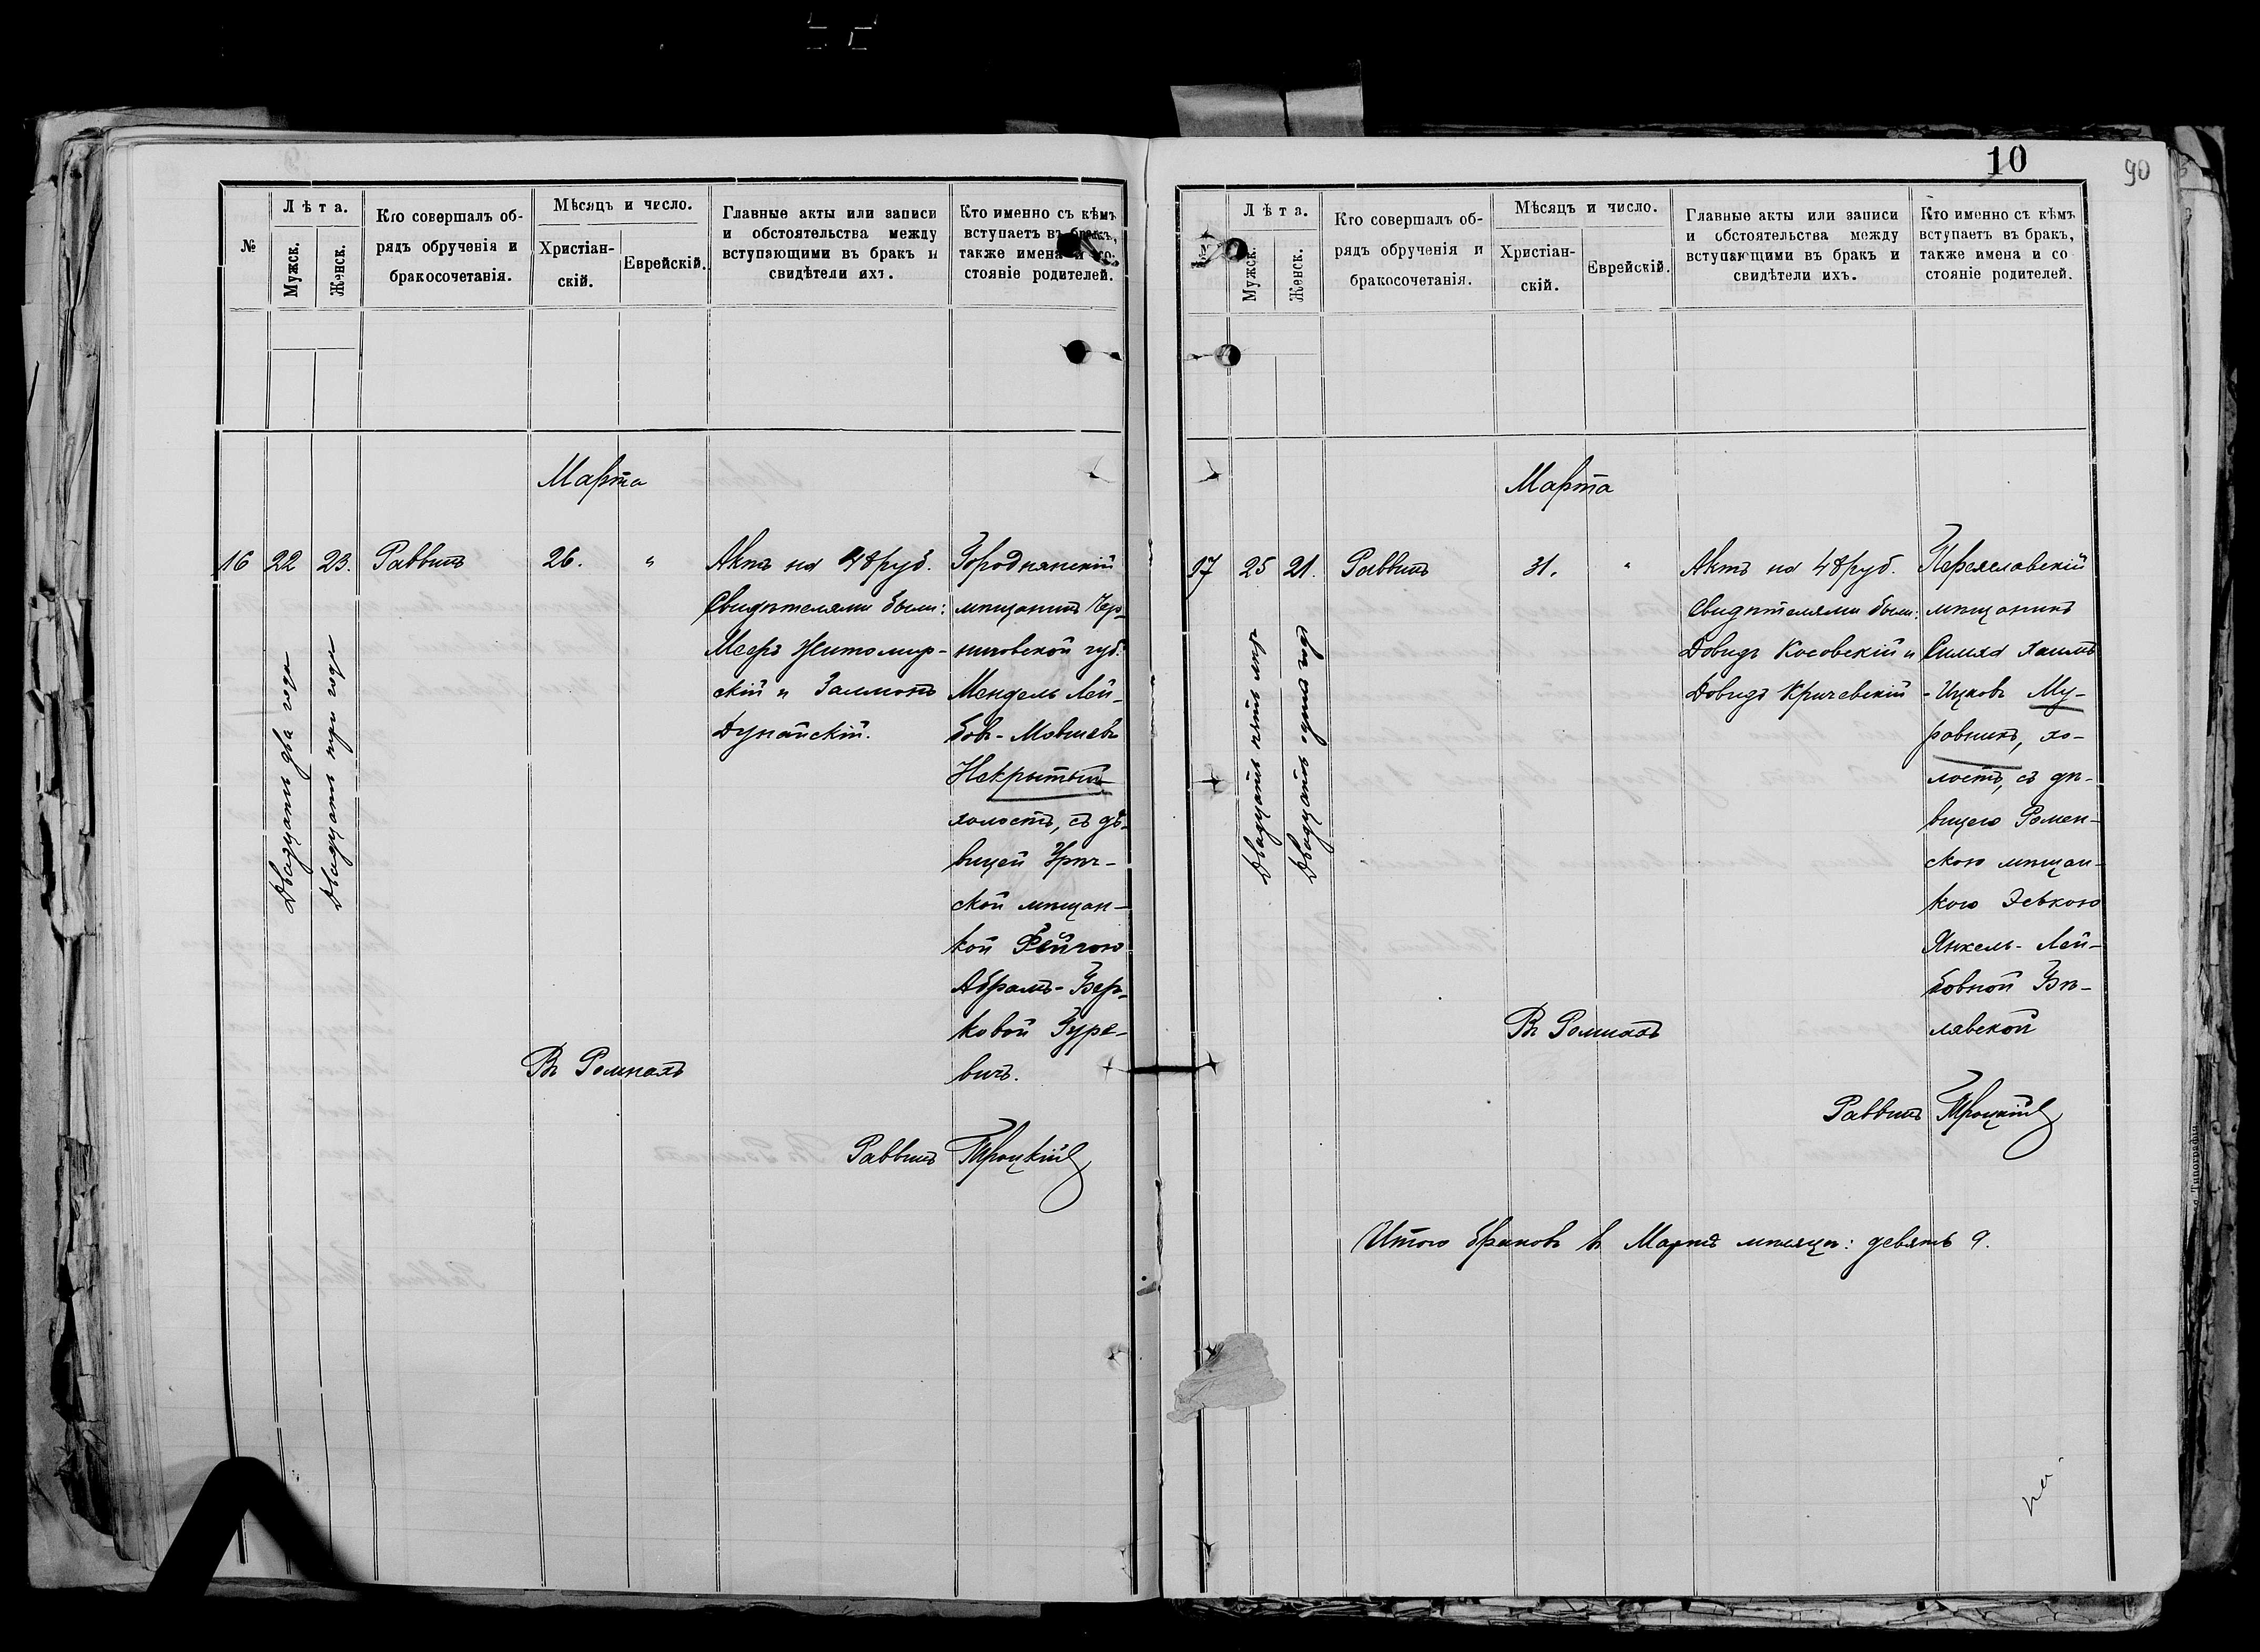 №
Лѣта.
Мужск.
Женск.
Кто совершалъ об-
рядъ обрученія и
бракосочетанія.
Мѣсяцъ и число.
Христіан-
скій.
Еврейскій.
Главные акты или записи
и обстоятельства между
вступающими въ бракъ и
свидѣтели ихъ.
Кто именно съ кѣмъ
вступаетъ въ бракъ,
также имена и со-
стояніе родителей.
Марта
16
22
23.
Двадцать два года
Двадцать три года
Раввинъ
26.
"
Актъ на 48 руб.
Свидѣтелями были:
Мееръ Житомир-
скій и Залманъ
Дунайскій.
Городнянскій
мѣщанинъ Чер-
ниговской губ.
Мендель Лей-
бов-Мовшевъ
Некрытый
холостъ, съ дѣ-
вицей Грич-
ской мѣщан-
кой Фейгою
Абрамъ-Бер-
ковой Гуре-
вичъ.
Въ Ромнахъ
Раввинъ Троцкій
10
90
№
Лѣта.
Мужск.
Женск.
Кто совершалъ об-
рядъ обрученія и
бракосочетанія.
Мѣсяцъ и число.
Христіан-
скій.
Еврейскій.
Главные акты или записи
и обстоятельства между
вступающими въ бракъ и
свидѣтели ихъ.
Кто именно съ кѣмъ
вступаетъ въ бракъ,
также имена и со
стояніе родителей.
Марта
17
25
21.
Двадцать пять лѣтъ
Двадцать одинъ годъ
Раввинъ
31.
"
Актъ на 48 руб.
Свидѣтелями были:
Довидъ Косовскій и
Довидъ Кричевскій
Переяславскій
мѣщанинъ
Симха Хаимъ
-Ицковъ Му-
ровникъ, хо-
лостъ, съ дѣ-
вицею Ромен-
скою мѣщан-
кою Эською
Янкель-Лей-
бовной Бѣ-
лявской
Въ Ромнахъ
Раввинъ Троцкій
Итого браковъ въ Мартѣ мѣсяцѣ: девять 9.
Типографія